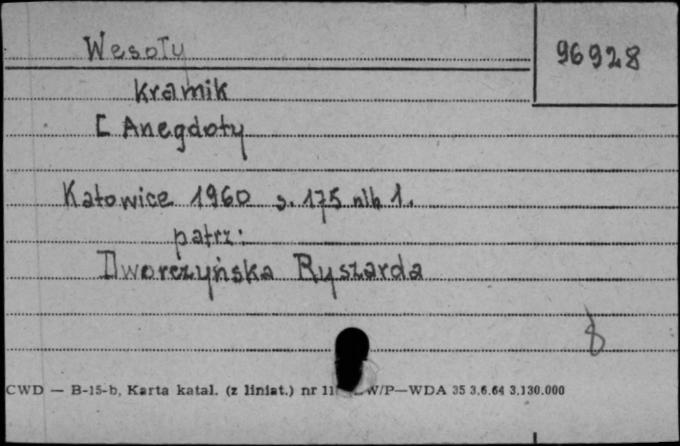 Wesoły
96928
kramik
[ Anegdoty
Katowice 1960 s. 175 nlb 1.
patrz:
Dworczyńska Ryszarda
8
CWD — B-15-b, Karta katal. (z liniat.) nr 11 W/P—WDA 35 3.6.64 3.130.000